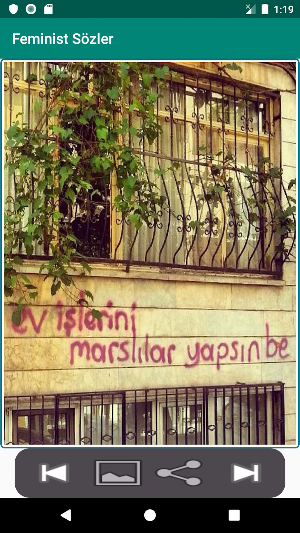 1:19
Feminist Sözler
ev işlerini
marslılar yapsın be